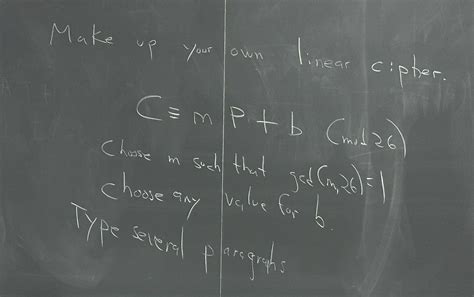 Make up your own linear cipher.
C ≡ m P + b (mod 26)
Choose m such that gcd(m,26)=1
choose any value for b.
Type several paragraphs